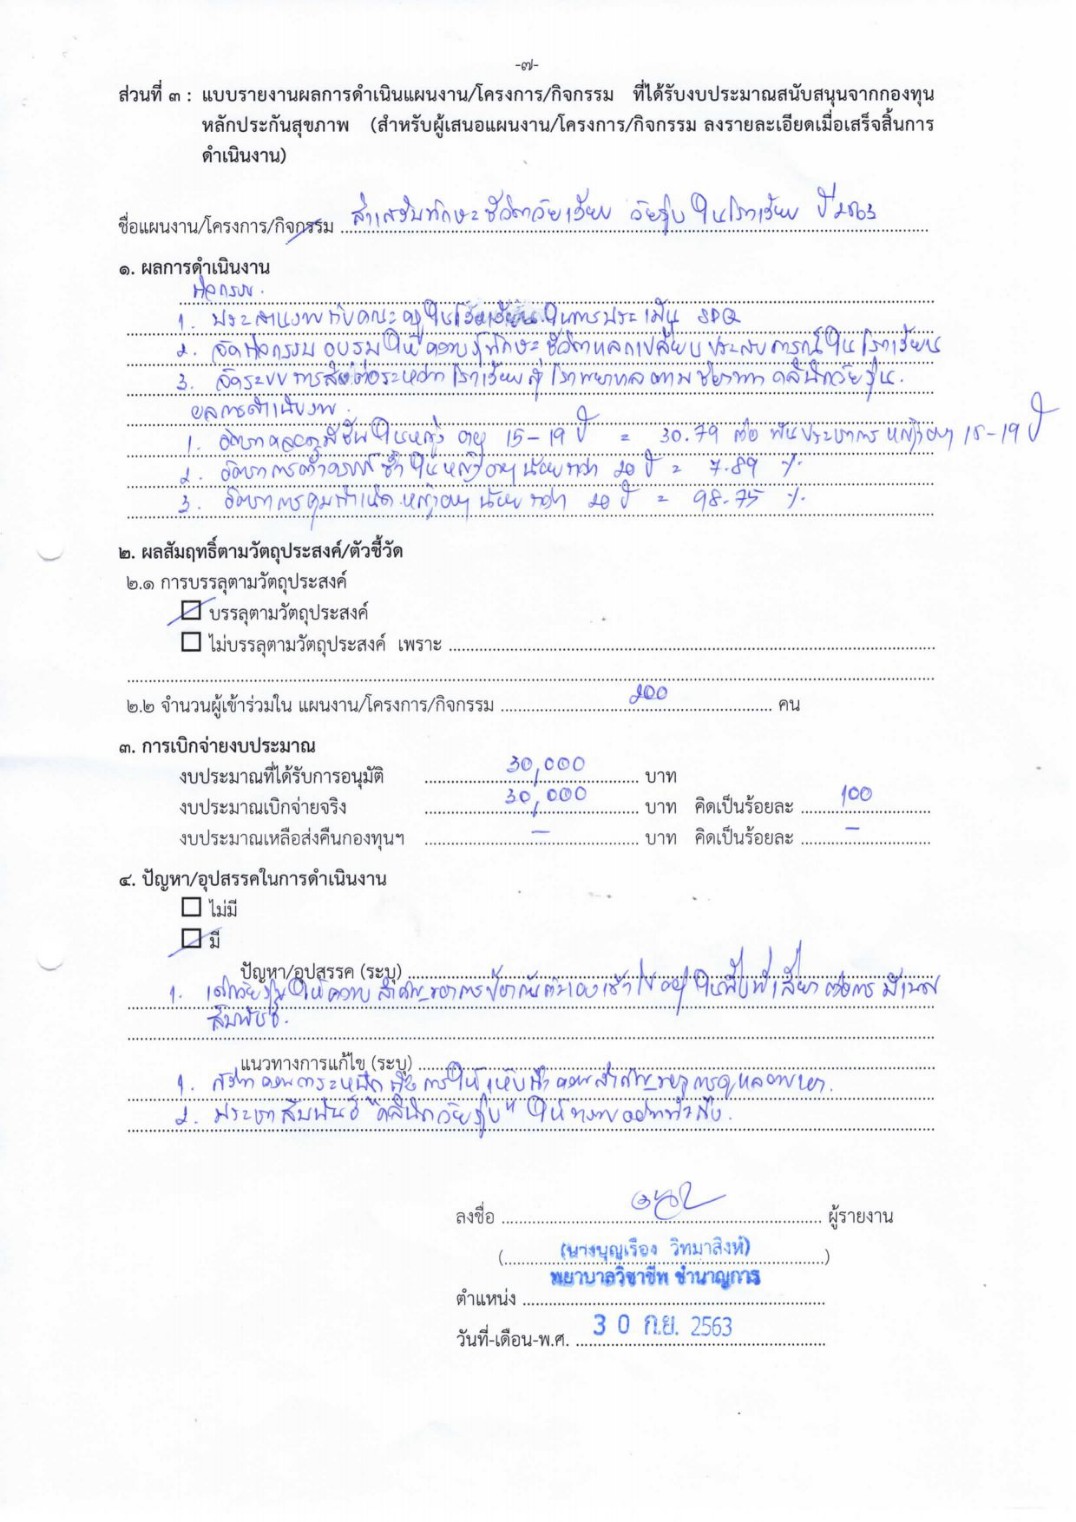 -๗-
ส่วนที่ ๓ : แบบรายงานผลการดำเนินแผนงาน/โครงการ/กิจกรรม ที่ได้รับงบประมาณสนับสนุนจากกองทุน
หลักประกันสุขภาพ (สำหรับผู้เสนอแผนงาน/โครงการ/กิจกรรม ลงรายละเอียดเมื่อเสร็จสิ้นการ
ดำเนินงาน)
ชื่อแผนงาน/โครงการ/กิจกรรม ส่งเสริมทักษะชีวิตวัยเรียน วัยรุ่น ในโรงเรียน ปี 2563
๑. ผลการดำเนินงาน
กิจกรรม.
1. ประสานงานกับคณะครูในโรงเรียน ในการประเมิน SDQ
2. จัดกิจกรรม อบรมให้ความรู้ทักษะชีวิตแลกเปลี่ยนประสบการณ์ในโรงเรียน
3. จัดระบบการส่งต่อระหว่างโรงเรียนสู่โรงพยาบาลตาม คลินิกวัยรุ่น.
ผลการดำเนินงาน.
1. อัตราคลอดมีชีพในหญิง อายุ 15-19 ปี = 30.79 ต่อ พันประชากร หญิงอายุ 15-19 ปี
2. อัตราการตั้งครรภ์ซ้ำในหญิงอายุน้อยกว่า 20 ปี = 7.89 %
3. อัตราการคุมกำเนิดหญิงอายุน้อยกว่า 20 ปี = 98.75 %
๒. ผลสัมฤทธิ์ตามวัตถุประสงค์/ตัวชี้วัด
๒.๑ การบรรลุตามวัตถุประสงค์
บรรลุตามวัตถุประสงค์
ไม่บรรลุตามวัตถุประสงค์ เพราะ
๒.๒ จำนวนผู้เข้าร่วมใน แผนงาน/โครงการ/กิจกรรม 200 คน
๓. การเบิกจ่ายงบประมาณ
งบประมาณที่ได้รับการอนุมัติ 30,000 บาท
งบประมาณเบิกจ่ายจริง 30,000 บาท คิดเป็นร้อยละ 100
งบประมาณเหลือส่งคืนกองทุนฯ - บาท คิดเป็นร้อยละ -
๔. ปัญหา/อุปสรรคในการดำเนินงาน
ไม่มี
มี
ปัญหา/อุปสรรค (ระบุ)
1. เด็กวัยรุ่นให้ความสำคัญของการป้องกันตนเองเข้าไปอยู่ในพื้นที่เสี่ยงต่อการมีเพศ
สัมพันธ์.
แนวทางการแก้ไข (ระบุ)
1. สร้างความตระหนักถึงการให้เห็นถึงความสำคัญของการดูแลตนเอง.
2. ประชาสัมพันธ์ "คลินิกวัยรุ่น" ให้ทราบอย่างทั่วถึง.
ลงชื่อ ผู้รายงาน
(นางบุญเรือง วิทมาสิงห์)
พยาบาลวิชาชีพ ชำนาญการ
ตำแหน่ง
วันที่-เดือน-พ.ศ. 30 ก.ย. 2563